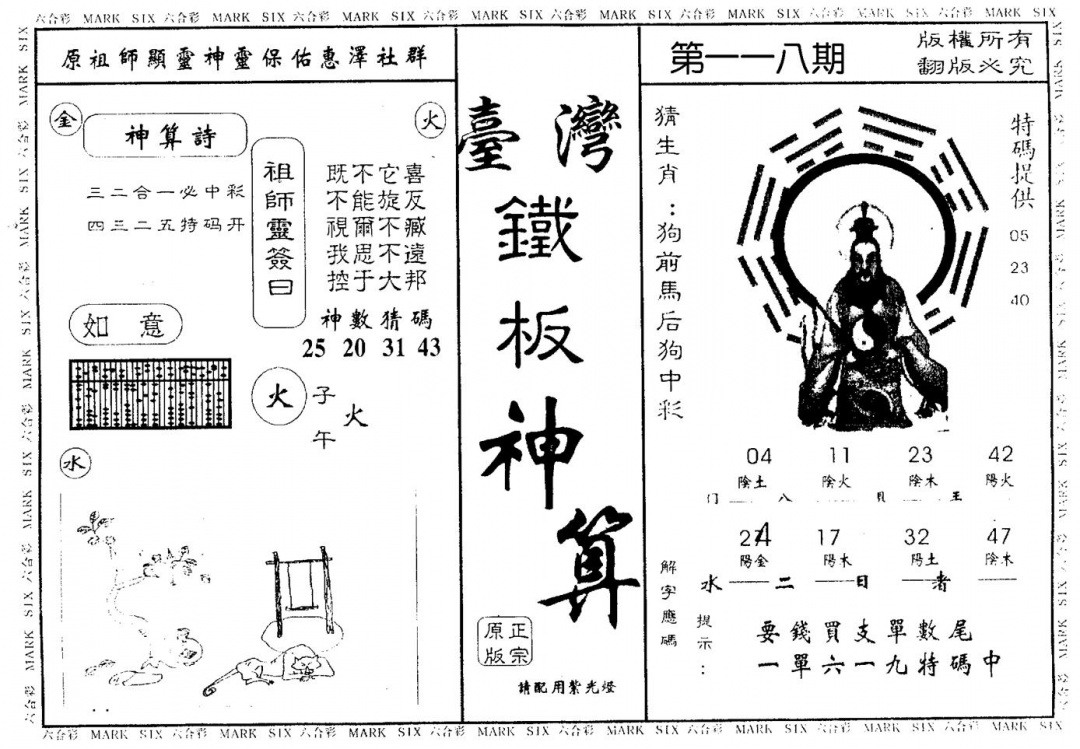 六合彩 MARK SIX 六合彩 MARK SIX 六合彩 MARK SIX 六合彩 MARK SIX 六合彩 MARK SIX 六合彩 MARK SIX 六合彩 MARK SIX 六合彩 MARK SIX
原祖師顯靈神靈保佑惠澤社群
金
火
神算詩
三二合一必中彩
四三二五特码开
祖師靈簽曰
既不它喜
不能旋反
視爾不臧
我思不遠
控于大邦
神數猜碼
25 20 31 43
如意
火
子
午
火
水
臺灣
鐵
板
神
算
正宗
原版
請配用紫光燈
第一一八期
版權所有
翻版必究
猜生肖：狗前馬后狗中彩
特碼提供
05
23
40
04 11 23 42
陰土 陰火 陰木 陽火
17 32 47
陽金 陽木 陽土 陰木
水 二 日 者
解字應碼
提示：
要錢買支單數尾
一單六一九特碼中
六合彩 MARK SIX 六合彩 MARK SIX 六合彩 MARK SIX 六合彩 MARK SIX 六合彩 MARK SIX 六合彩 MARK SIX 六合彩 MARK SIX 六合彩 MARK SIX